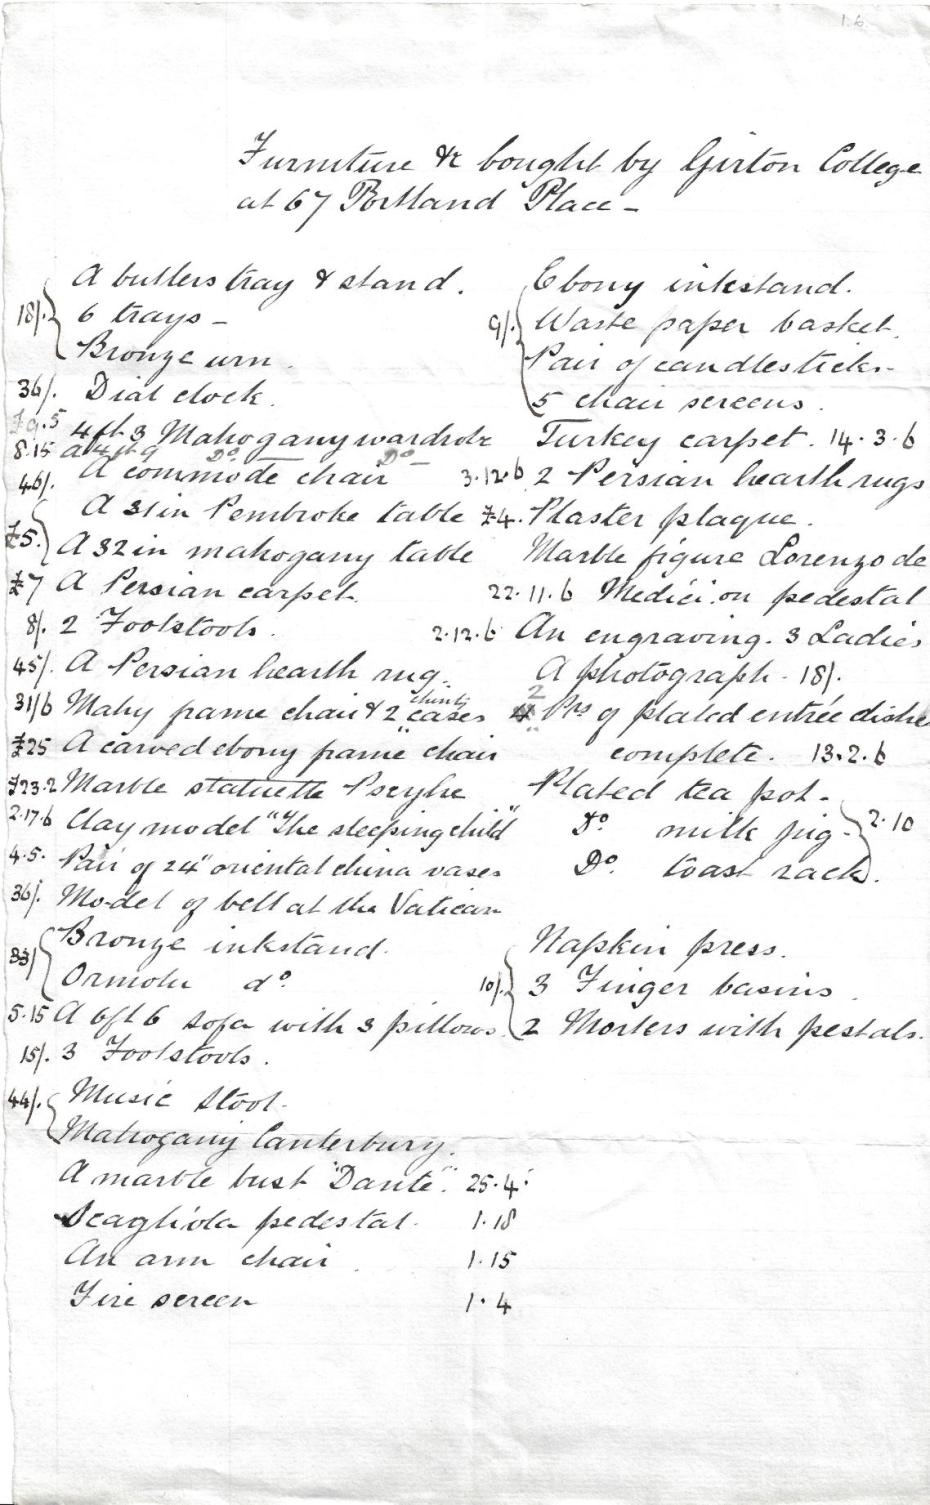 1.6.
Furniture &c bought by Girton College
at 67 Portland Place -
A butlers tray & stand.
18/. 6 trays -
Bronze urn.
36/. Dial clock.
£9.5 4ft 3 Mahogany wardrobe
8.15 a 4ft 9 Do. Do -
46/. A commode chair
A 31 in Pembroke table
£5. A 32 in mahogany table
£7 A Persian carpet.
8/. 2 Footstools.
45/. A Persian hearth rug.
31/6 Mahy frame chair & 2 chintz cases
£25 A carved ebony frame chair
£23.2 Marble statuette Psyche
2.17.6 Clay model "The sleeping child"
4.5. Pair of 24" oriental china vases
36/. Model of bell at the Vatican
33/ Bronze inkstand.
Ormolu do.
5.15 A 6ft 6 sofa with 3 pillows.
15/. 3 Footstools.
44/. Music Stool.
Mahogany Canterbury.
A marble bust "Dante". 25.4.
Scagliola pedestal. 1.18
An arm chair. 1.15
Fire screen 1.4
Ebony inkstand.
9/. Waste paper basket.
Pair of candlesticks.
5 chair screens.
Turkey carpet. 14.3.6
3.12.6 2 Persian hearth rugs
£4. Plaster plaque.
Marble figure Lorenzo de
22.11.6 Medici on pedestal
2.12.6 An engraving. 3 Ladies
A photograph - 18/.
2 Prs of plated entrée dishe
complete. 13.2.6
Plated tea pot -
Do. milk jug - 2.10
Do. toast rack.
Napkin press.
10/. 3 Finger basins.
2 Morters with pestals.